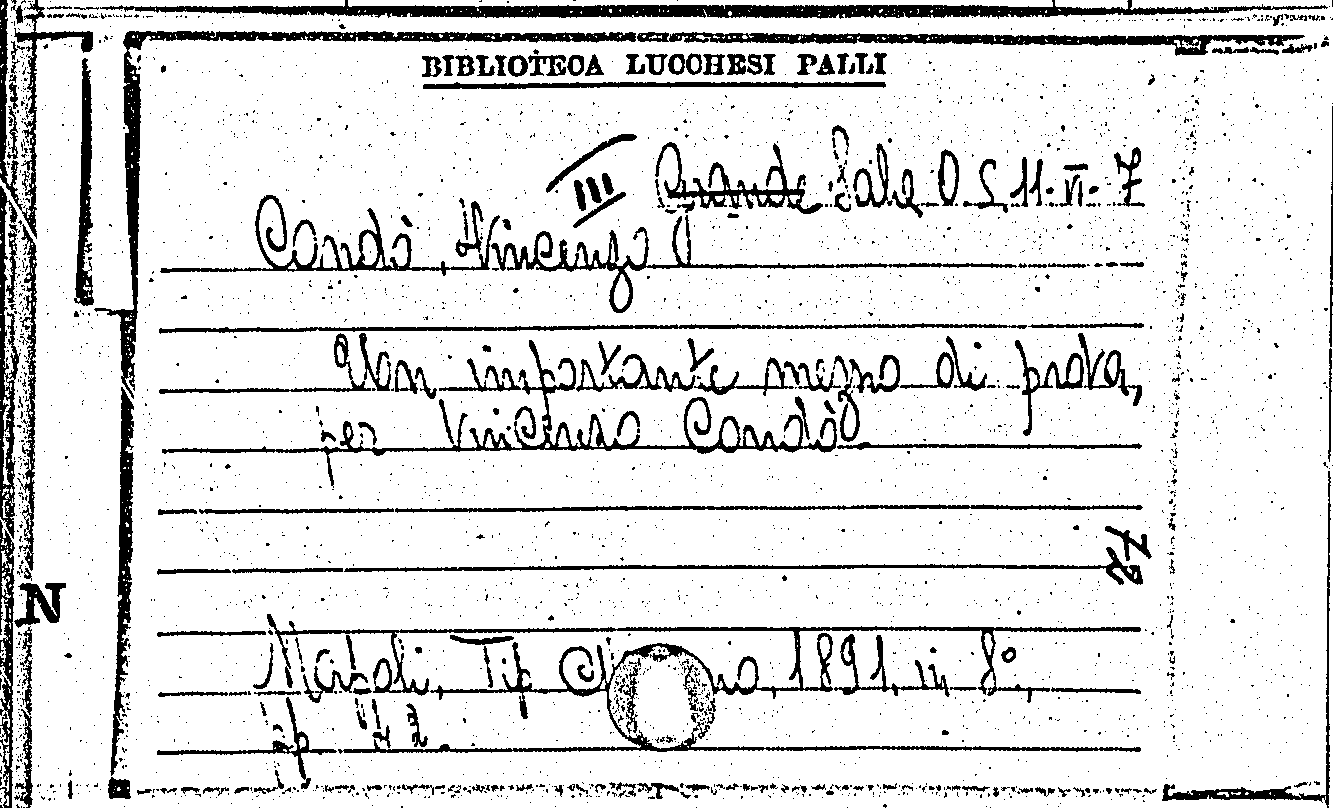 BIBLIOTECA LUCCHESI PALLI
III Grande Sala O. S. 11. VI. 7
Condò, Vincenzo
Un importante mezzo di prova,
per Vincenzo Condò
72
N
Napoli, Tip. 1891, in 8°,
pp 42.